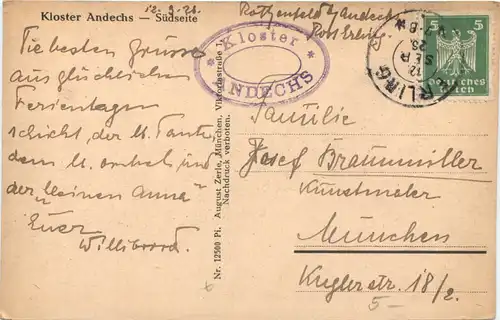 Kloster Andechs — Südseite
12.9.28.
Rothenfeld b/Andechs
Post Erling
Kloster
ANDECHS
RLING
12
SEP
28
5
5
Deutsches
Reich
Die besten Grüsse
aus glücklichen
Ferientagen
schickt, der l. Tante,
dem l. Onkel und
der "kleinen Anna"
Euer
Willibrord.
Nr. 12500 Pi. August Zerle, München, Viktoriastraße 1.
Nachdruck verboten.
Familie
Josef Braunmiller
Kunstmaler
München
Kuglerstr. 18/2.
5-